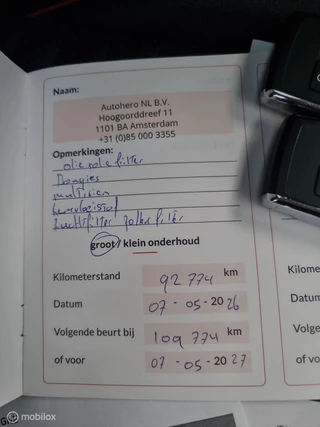 Naam:
Autohero NL B.V.
Hoogoorddreef 11
1101 BA Amsterdam
+31 (0)85 000 3355
Opmerkingen:
olie oliefilter
Bougies
multirien
remvloeistof
luchtfilter pollenfilter
groot / klein onderhoud
Kilometerstand 92 774 km
Datum 07 - 05 - 20 26
Volgende beurt bij 109 774 km
of voor 07 - 05 - 20 27
Kilome
Datum
Volge
of vo
mobilox